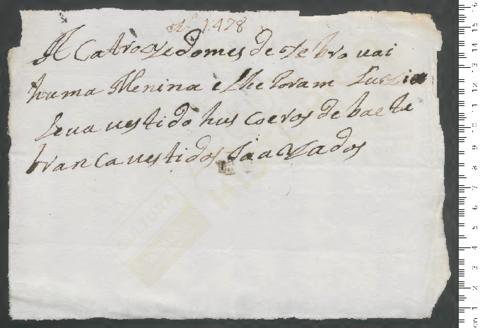 Nº 1478
A Catro ze do mes de Febro vai
huma Menina e lhe poram Luzia
leva vestido hus coeros de baeta
branca vestidos ja azados